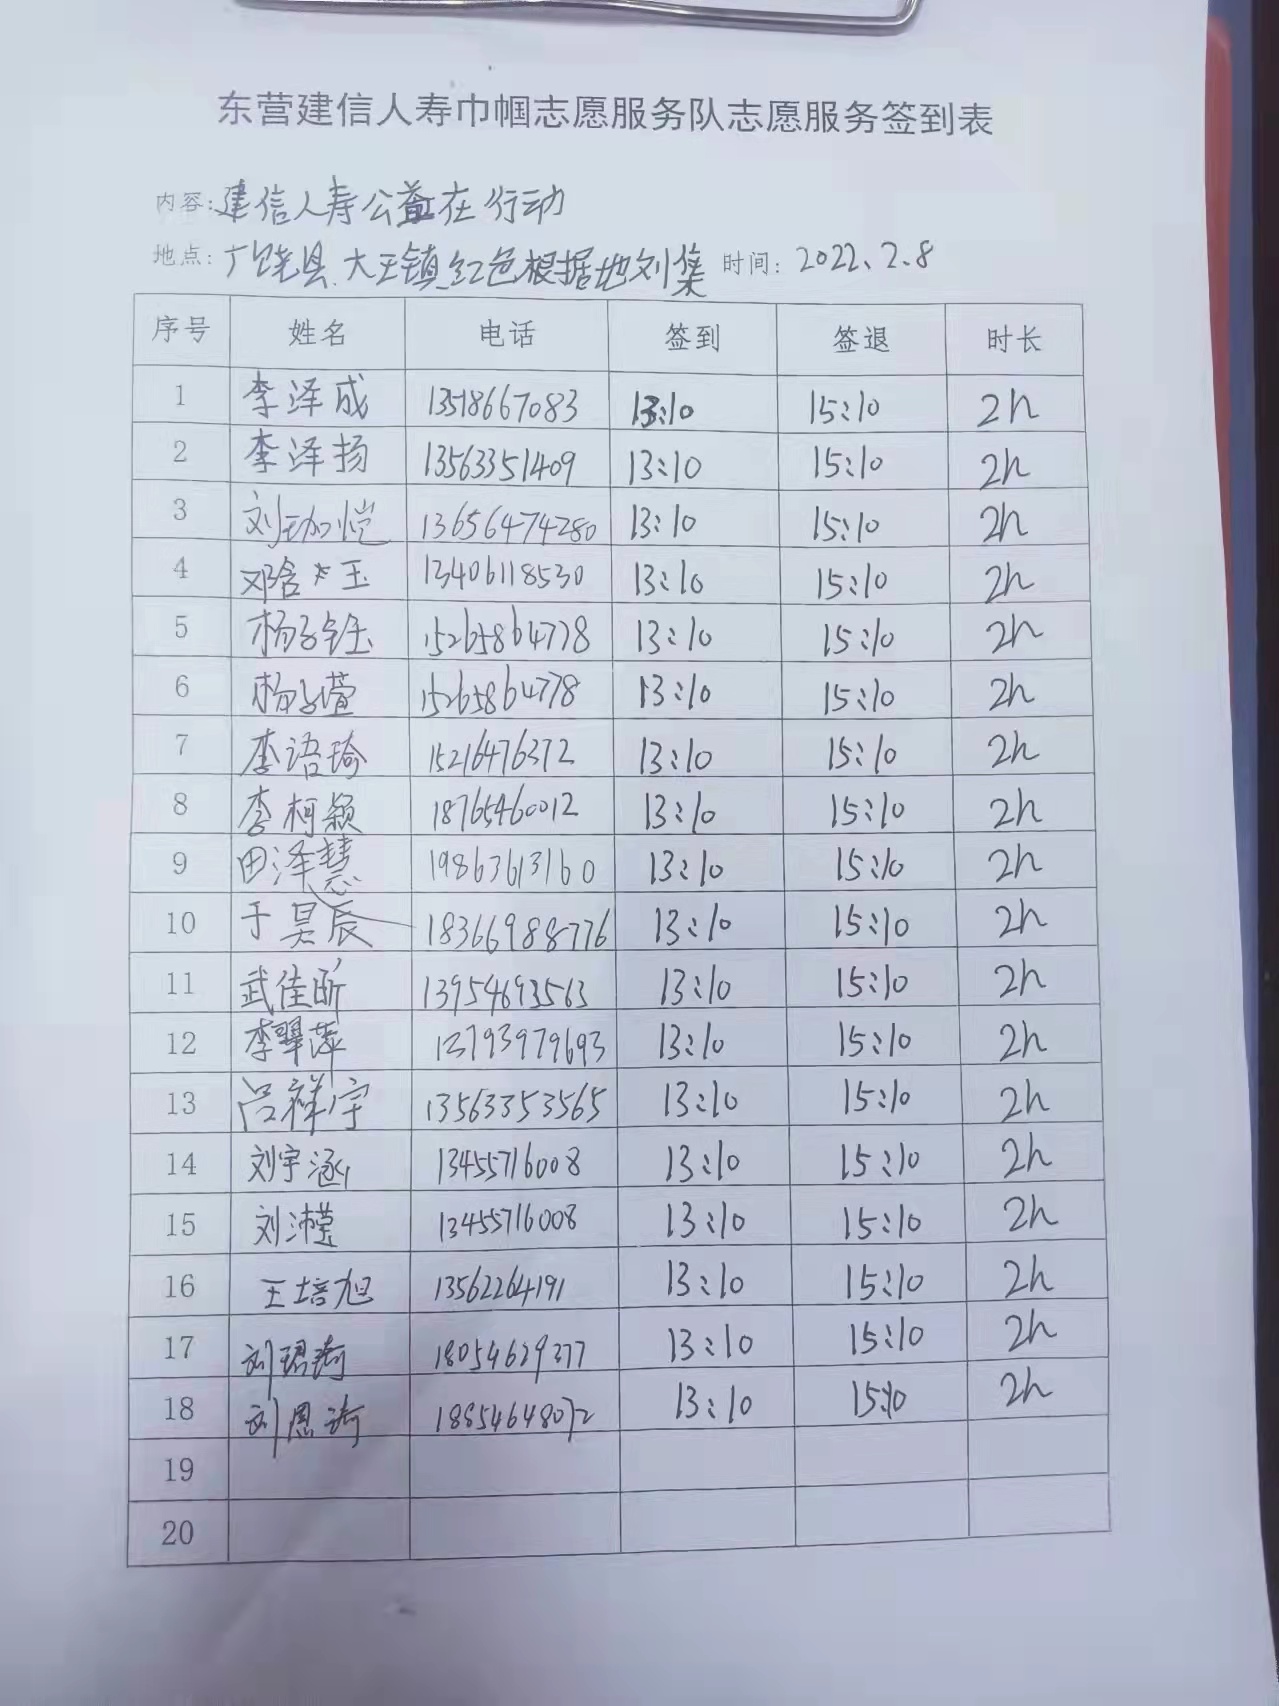 东营建信人寿巾帼志愿服务队志愿服务签到表
内容:建信人寿公益在行动
地点:广饶县.大王镇红色根据地刘集 时间:2022、2.8
序号 姓名 电话 签到 签退 时长
1 李泽成 13518667083 13:10 15:10 2h
2 李泽扬 13563351409 13:10 15:10 2h
3 刘珈恺 13656474280 13:10 15:10 2h
4 邓含 玉 13406118530 13:10 15:10 2h
5 杨子钰 15265864778 13:10 15:10 2h
6 杨子萱 15265864778 13:10 15:10 2h
7 李语琦 15216476372 13:10 15:10 2h
8 李柯颖 18765460012 13:10 15:10 2h
9 田泽慧 19863613160 13:10 15:10 2h
10 于昊辰 18366988776 13:10 15:10 2h
11 武佳昕 13954693563 13:10 15:10 2h
12 李翠萍 13793979693 13:10 15:10 2h
13 吕祥宇 13563353565 13:10 15:10 2h
14 刘宇涵 13455716008 13:10 15:10 2h
15 刘沛莹 13455716008 13:10 15:10 2h
16 王培旭 13562264191 13:10 15:10 2h
17 刘珺琦 18054629377 13:10 15:10 2h
18 刘恩 18854648072 13:10 15:10 2h
19
20